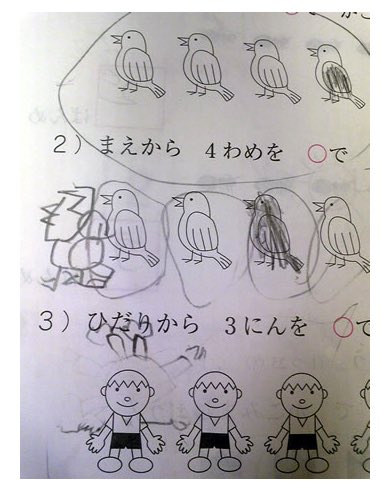 2) まえから 4わめを ○で
3) ひだりから 3にんを ○で